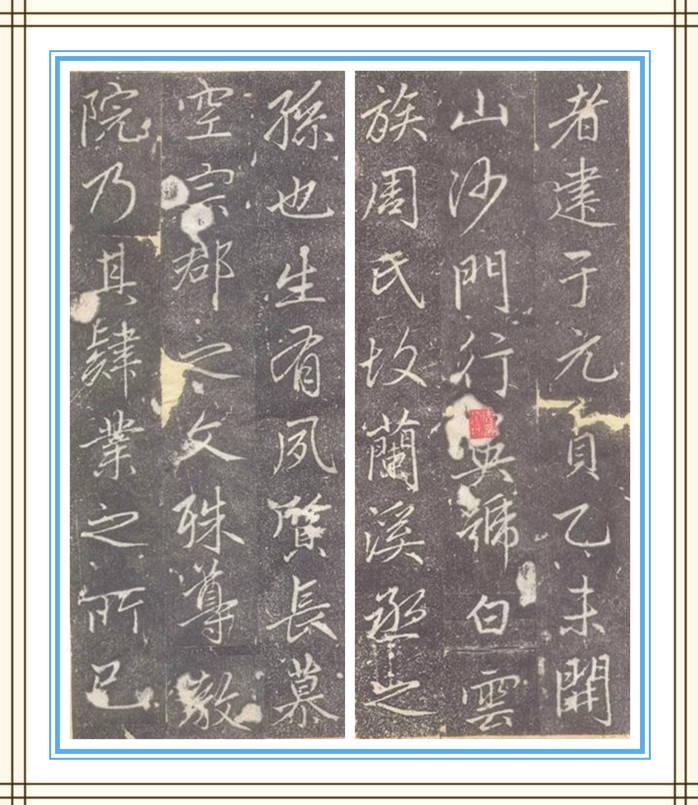 者建于元貞乙未開
山沙門行英號白雲
族周氏故蘭溪丞之
孫也生有夙質長慕
空宗郡之文殊導教
院乃其肄業之所已